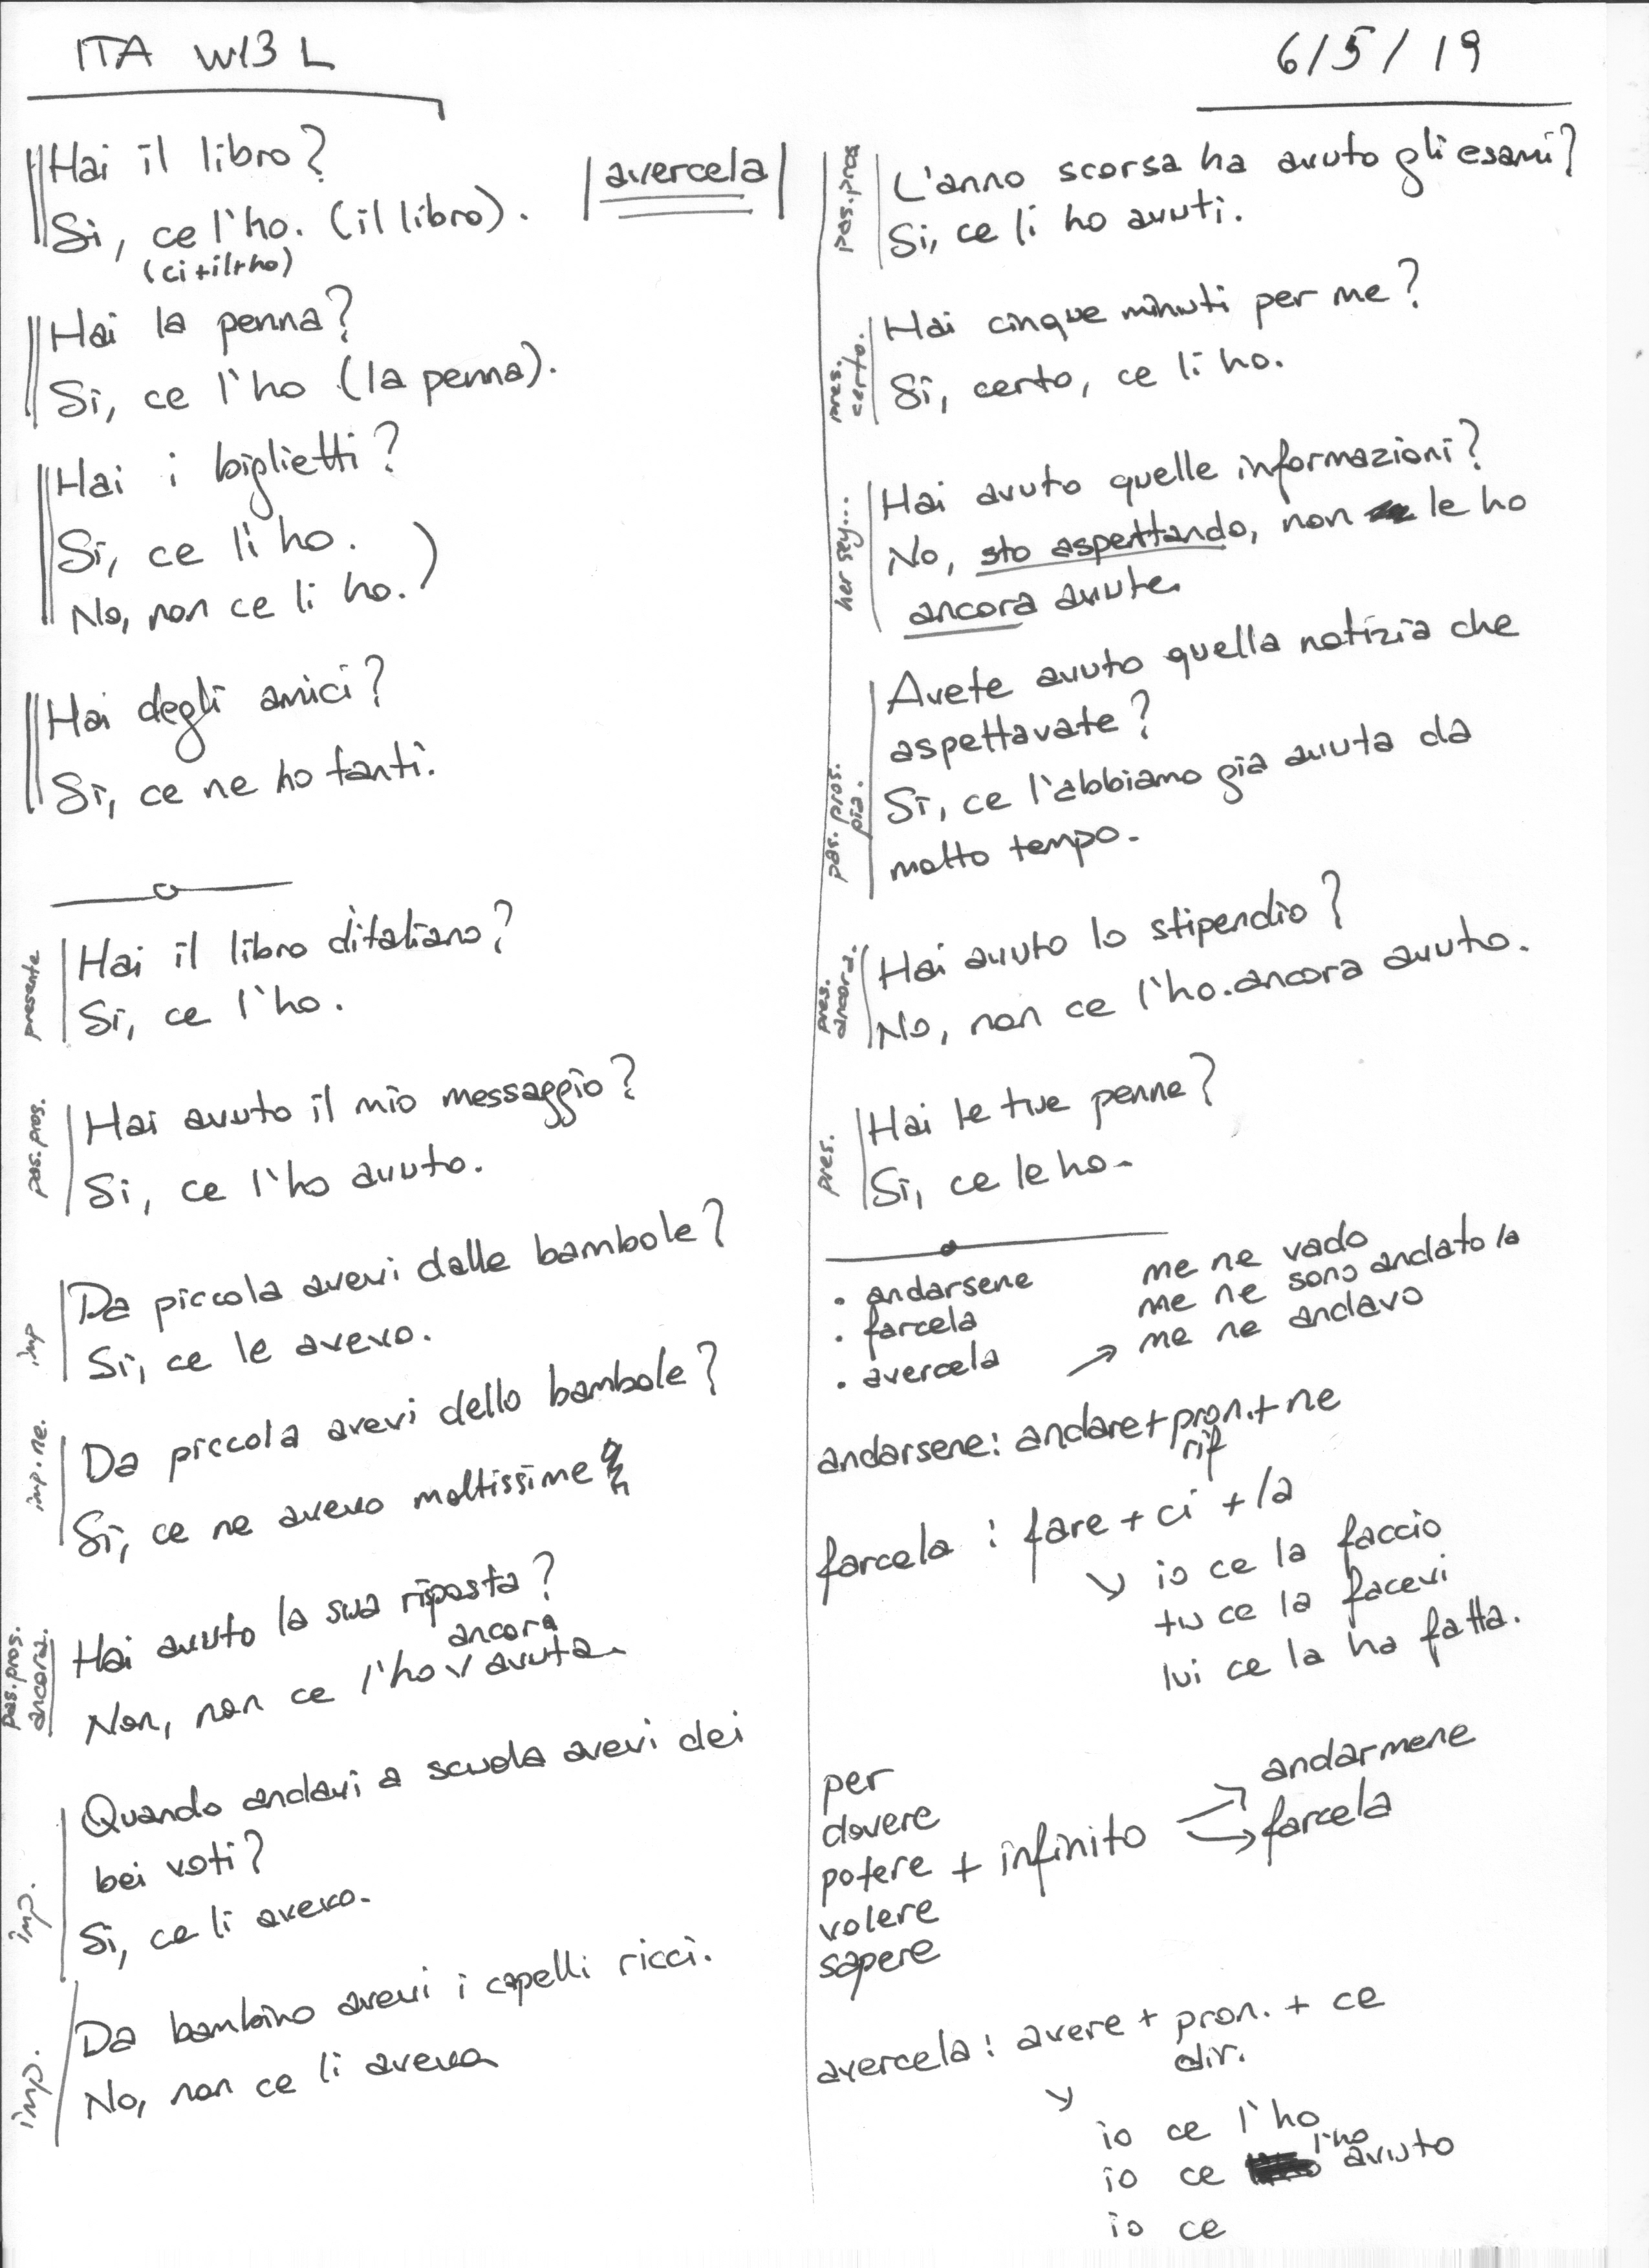 ITA W13 L
6/5/19
Hai il libro?
Si, ce l'ho. (il libro).
(ci+il+ho)
avercela
Hai la penna?
Si, ce l'ho (la penna).
Hai i biglietti?
Si, ce li ho.
No, non ce li ho.)
Hai degli amici?
Si, ce ne ho tanti.
presente
Hai il libro d'italiano?
Si, ce l'ho.
pas. pros.
Hai avuto il mio messaggio?
Si, ce l'ho avuto.
imp
Da piccola avevi dalle bambole?
Si, ce le avevo.
imp. ne.
Da piccola avevi dello bambole?
Si, ce ne avevo moltissime
pas. pros.
ancora.
Hai avuto la sua riposta?
ancora
Non, non ce l'ho v avuta.
imp.
Quando andavi a scuola avevi dei
bei voti?
Si, ce li avevo.
imp.
Da bambino avevi i capelli ricci.
No, non ce li aveva
pas. pros
L'anno scorsa ha avuto gli esami?
Si, ce li ho avuti.
certo.
Hai cinque minuti per me?
Si, certo, ce li ho.
her şey...
Hai avuto quelle informazioni?
No, sto aspettando, non le ho
ancora avute.
pas. pros.
già.
Avete avuto quella notizia che
aspettavate?
Si, ce l'abbiamo già avuta da
molto tempo.
pres.
ancora.
Hai avuto lo stipendio?
No, non ce l'ho.ancora avuto.
pres.
Hai le tue penne?
Si, ce le ho.
• andarsene
• farcela
• avercela
me ne vado
me ne sono andato/a
→ me ne andavo
andarsene: andare+pron.+ne
rif
farcela: fare + ci + la
↘ io ce la faccio
tu ce la facevi
lui ce la ha fatta.
per
dovere
potere + infinito
volere
sapere
andarmene
farcela
avercela: avere + pron. + ce
dir.
↘
io ce l'ho
io ce l'ho avuto
io ce